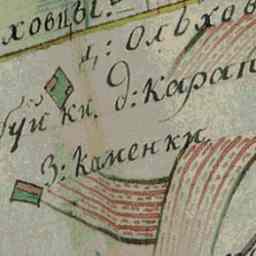 ховцы.
д: ольхов
буйки. д: карап
З: Каменки